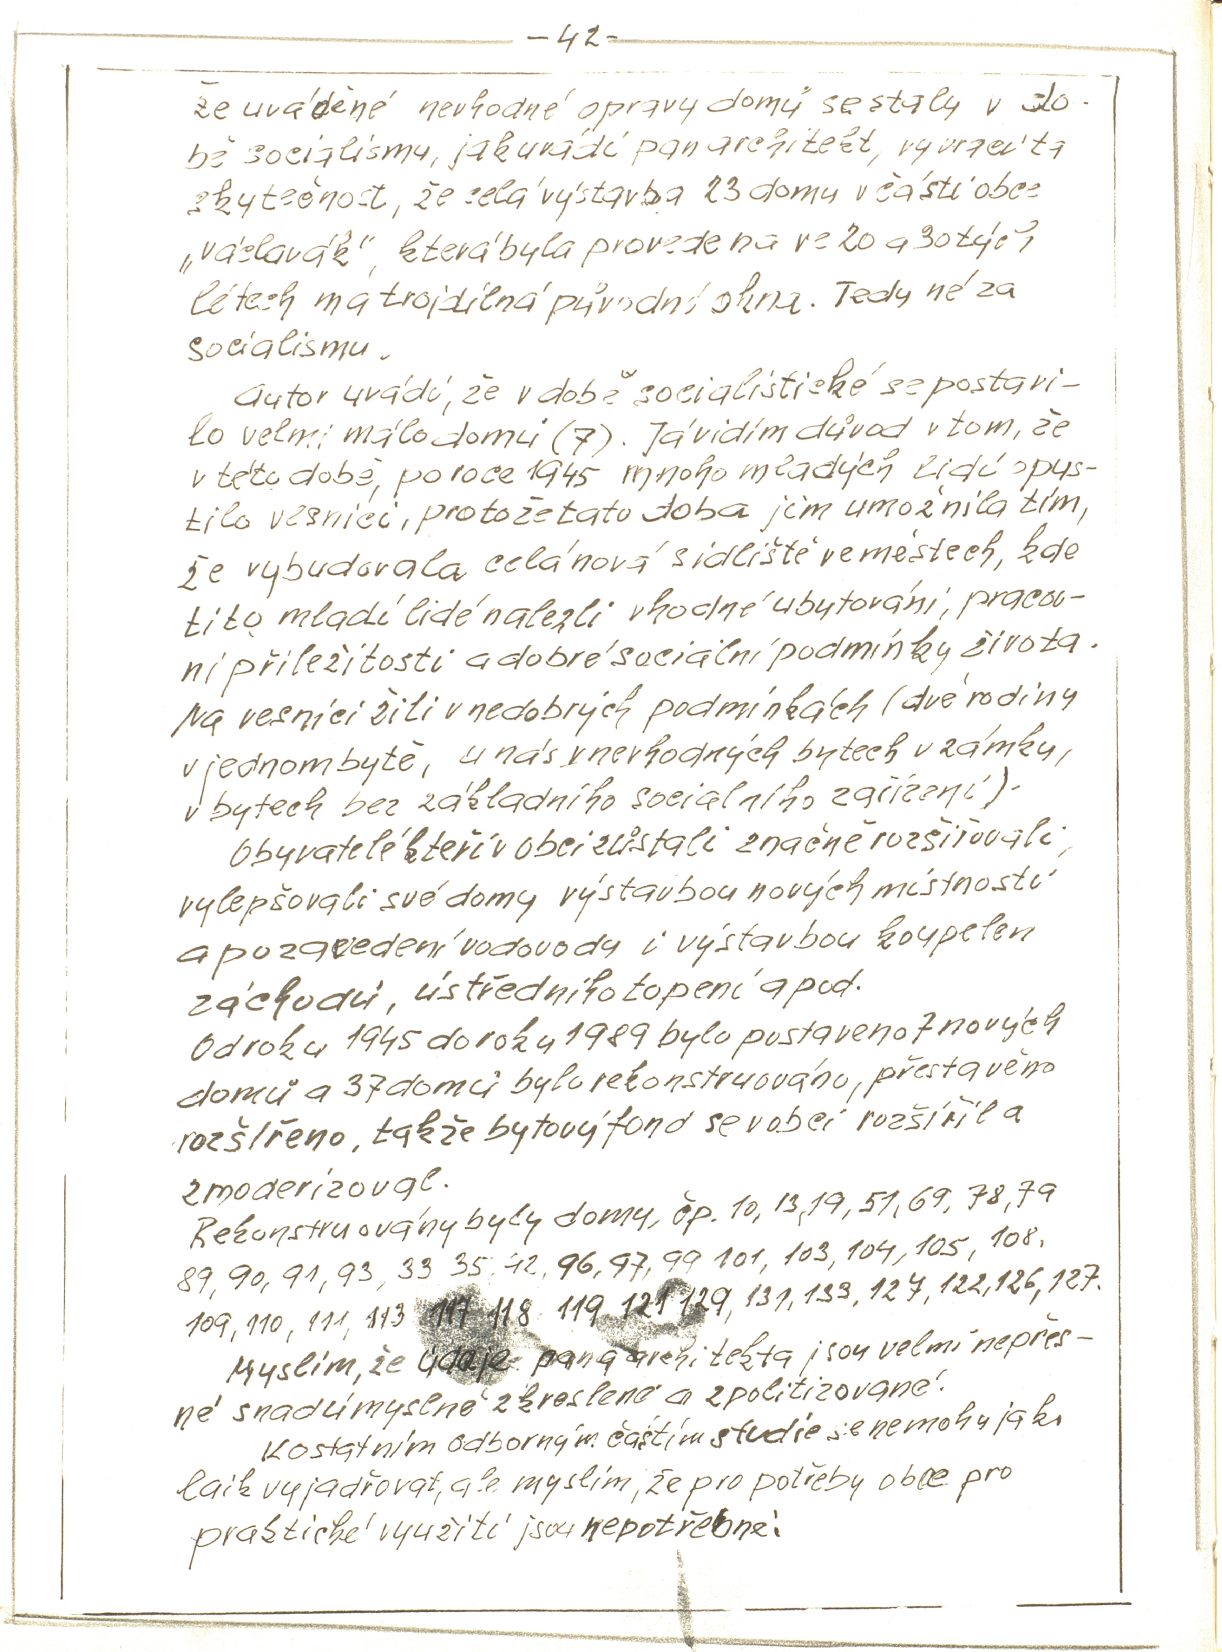 -42-
že uváděné nevhodné opravy domů se staly v do-
bě socialismu, jak uvádí pan architekt, vyvrací ta
skutečnost, že celá výstavba 23 domu v části obce
„Václavák", která byla provedena ve 20 a 30 tých
létech má trojdílná původní okna. Tedy né za
socialismu.
Autor uvádí, že v době socialistické se postavi-
lo velmi málo domů (7). Já vidím důvod v tom, že
v této době, po roce 1945 mnoho mladých lidí opus-
tilo vesnici, protože tato doba jim umožnila tím,
že vybudovala celá nová sídliště ve městech, kde
tito mladí lidé nalezli vhodné ubytování, pracov-
ní příležitosti a dobré sociální podmínky života.
Na vesnici žili v nedobrých podmínkách (dvě rodiny
v jednom bytě, u nás v nevhodných bytech v zámku,
v bytech bez základního sociálního zařízení).
Obyvatelé kteří v obci zůstali značně rozšiřovali,
vylepšovali své domy výstavbou nových místností
a po zavedení vodovodu i výstavbou koupelen
záchodů, ústředního topení apod.
Od roku 1945 do roku 1989 bylo postaveno 7 nových
domů a 37 domů bylo rekonstruováno, přestavěno
rozšířeno, takže bytový fond se v obci rozšířil a
zmoderizoval.
Rekonstruovány byly domy, čp. 10, 13, 19, 51, 69, 78, 79
89, 90, 91, 93, 33 35, 42, 96, 97, 99 101, 103, 104, 105, 108.
109, 110, 111, 113 117 118 119 121 129, 131, 133, 127, 122, 126, 127.
Myslím, že údaje pana architekta jsou velmi nepřes-
né snad úmyslně zkreslené a zpolitizované.
K ostatním odborným částím studie se nemohu jako
laik vyjadřovat, ale myslím, že pro potřeby obce pro
praktické využití jsou nepotřebné.